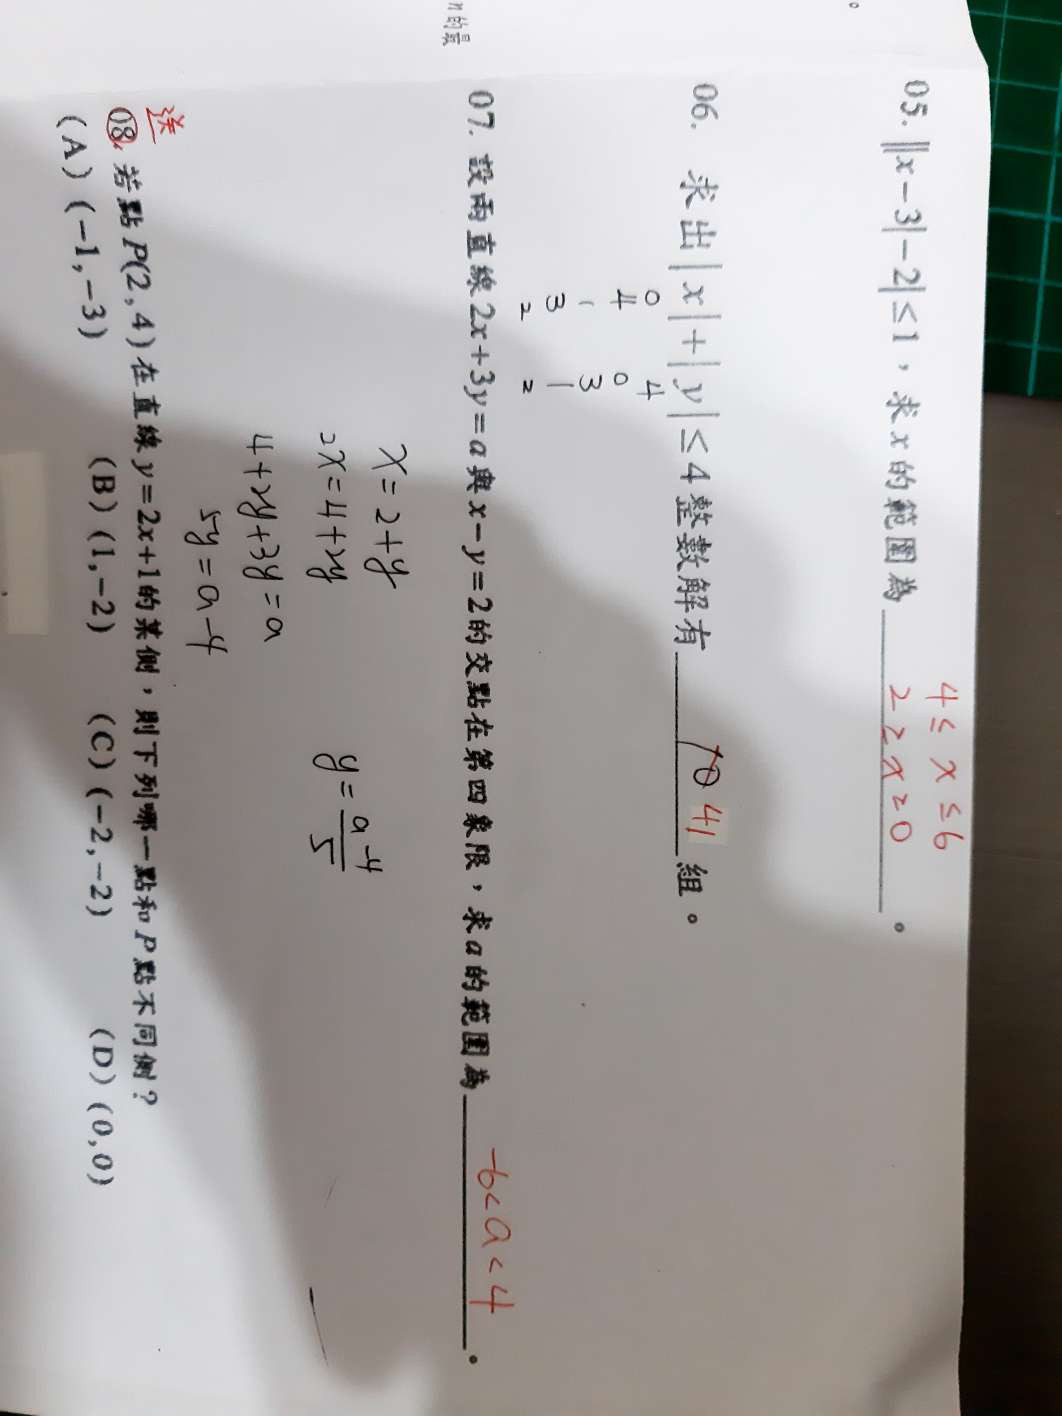 n的最
。
4≤x≤6
05. ||x-3|-2|≤1，求x的範圍為 2≥x≥0 。
06. 求出|x|+|y|≤4整數解有 10 41 組。
0 4
4 0
1 3
3 1
2 2
07. 設兩直線2x+3y=a與x-y=2的交點在第四象限，求a的範圍為 -6<a<4 。
x=2+y
2x=4+2y
y=a-4/5
4+2y+3y=a
5y=a-4
送
08. 若點P(2,4)在直線y=2x+1的某側，則下列哪一點和P點不同側？
(A)(-1,-3) (B)(1,-2) (C)(-2,-2) (D)(0,0)